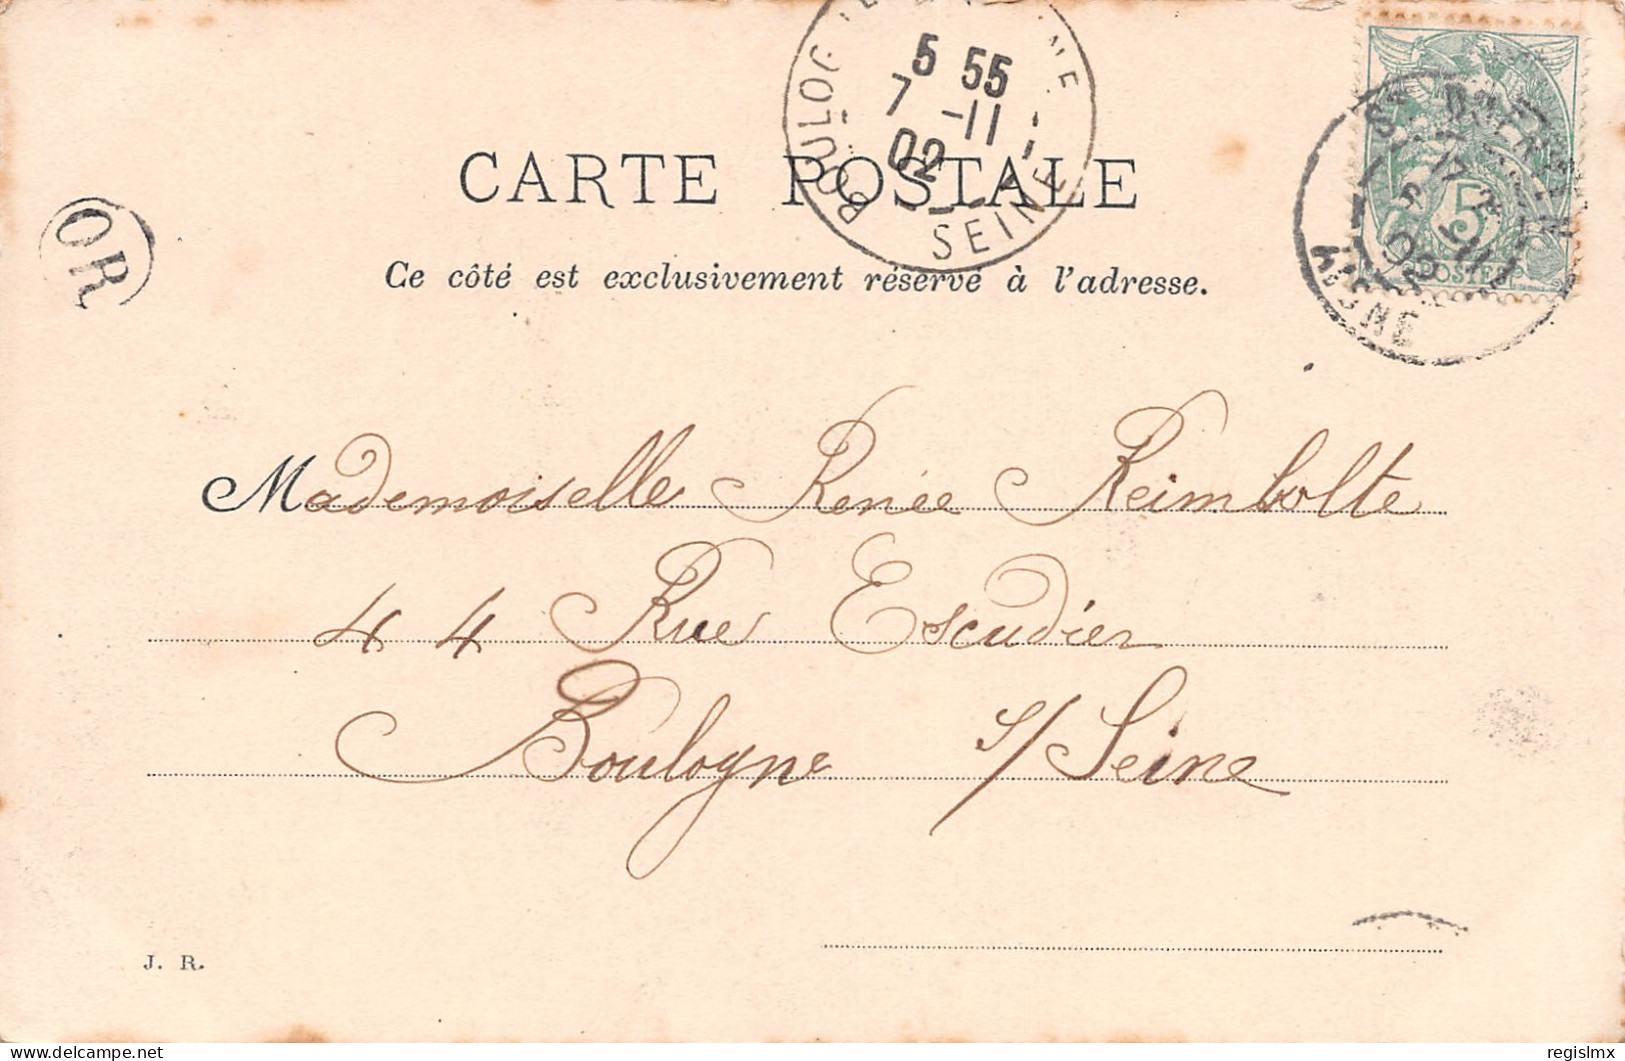 5 55
7 -11
02
SEINE
5
POSTES
AISNE
OR
CARTE POSTALE
Ce côté est exclusivement réservé à l'adresse.
Mademoiselle Renée Reimbolte
44 Rue Escudier
Boulogne s/Seine
J. R.
delcampe.net
regislmx